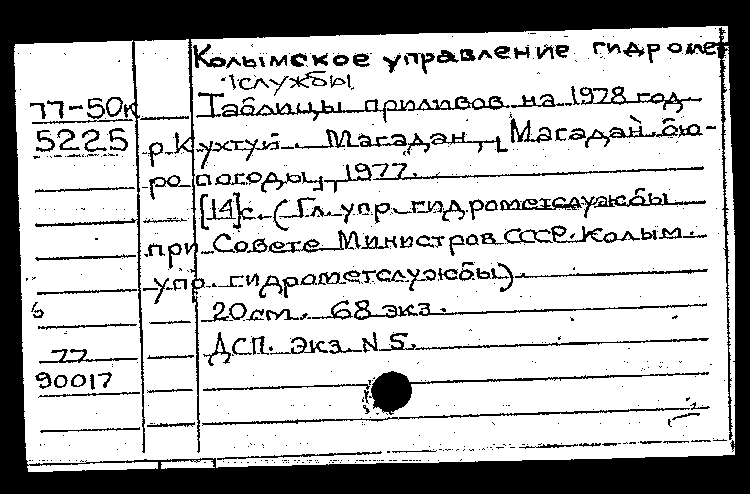 Колымское управление гидромет
службы
77-50к Таблицы приливов на 1978 год.
5225 р.Кухтуй. Магадан, [Магадан. бю-
ро погоды], 1977.
[14]с. (Гл. упр. гидрометслужбы
при Совете Министров СССР. Колым.
упр. гидрометслужбы).
6 20см. 68 экз.
77 ДСП. Экз. N 5.
90017